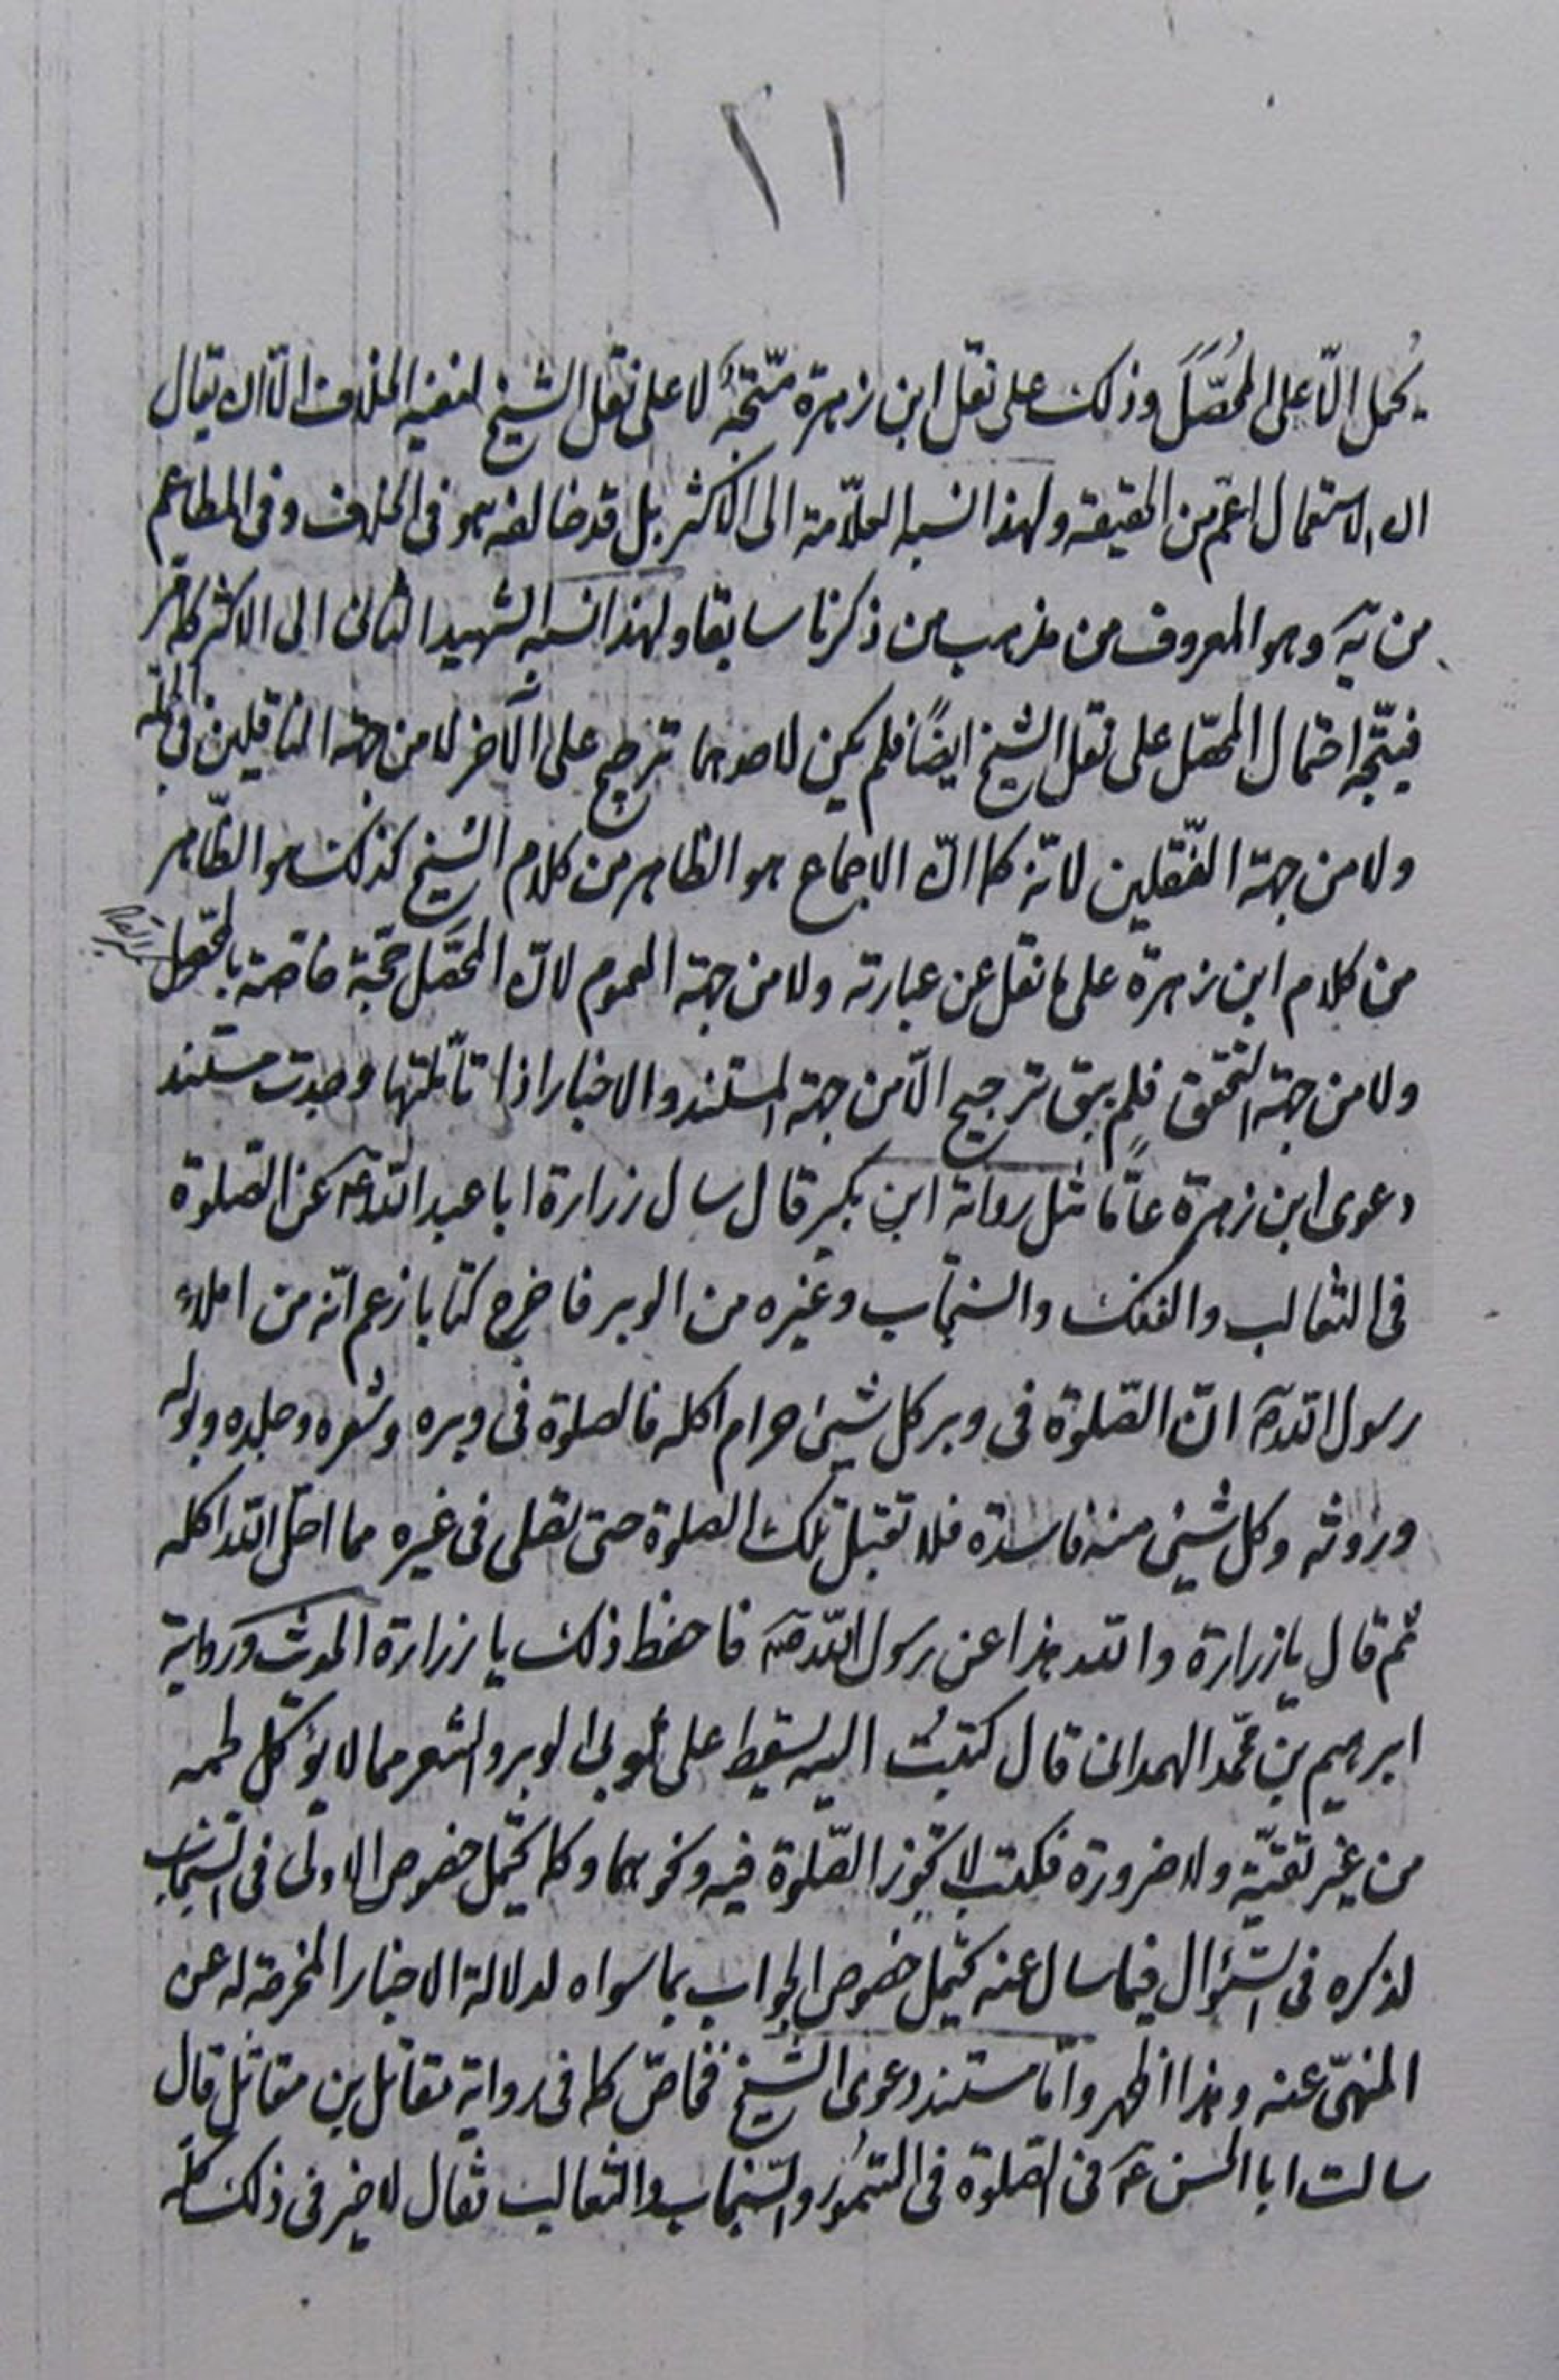 ١١
يحمل الّا على المحُصَّلَ وذلك على نقل ابن زهرة متّجهٌ لا على نقل الشيخ لنفيه الخلاف الّا ان يقال
ان الاستعمال اعمّ من الحقيقة ولهذا نسبه العلّامة الى الاكثر بل قد خالفه هو فى الخلاف وفى المطاعم
من يَه وهو المعروف من مذهب من ذكرنا سابقا ولهذا نسبه الشهيد الثانى الى الاكثر كما مر
فيتّجه احتمال المحصّل على نقل الشيخ ايضًا فلم يكن لاحدهما ترجيح على الآخر لا من جهة الناقلين فى الجملة
ولا من جهة النّقلين لانّه كما انّ الاجماع هو الظاهر من كلام الشيخ كذلك هو الظّاهر
من كلام ابن زهرة على ما نقل عن عبارته ولا من جهة العموم لانّ المحصَّل حجّة خاصّة بالمحصّل
ولا من جهة التحقق فلم يبق ترجيح الّا من جهة المستند والاخبار اذا تأمّلتها وجدت مستند
دعوى ابن زهرة عامًّا مثل رواية ابن بكير قال سال زرارة ابا عبد اللّه عَ عن الصّلوة
فى الثعالب والفنك والسنجاب وغيره من الوبر فاخرج كتابا زعم انّه من املاء
رسول اللّه صَ انّ الصّلوة فى وبر كل شيئ حرام اكله فالصلوة فى وبره وشعره وجلده وبوله
وروثه وكل شيئ منه فاسدة فلا تقبل تلك الصلوة حتى تصلى فى غيره مما احلّ اللّه اكله
ثم قال يا زرارة واللّه هذا عن رسول اللّه صَ فاحفظ ذلك يا زرارة الحديث ورواية
ابرهيم بن محمّد الهمدانى قال كتبتُ اليه يسقط على ثوبى الوبر والشعر مما لا يؤكل لحمه
من غير تقيّة ولا ضرورة فكتب لا تجوز الصّلوة فيه ونحوهما وكما يحتمل خصوص الاولى فى السّنجاب
لذكره فى السّؤال فيما سال عنه يحتمل خصوص الجواب بما سواه لدلالة الاخبار المخرجة له عن
المنهىّ عنه وهذا اظهر وامّا مستند دعوى الشّيخ فخاصّ كما فى رواية مقاتل بن مقاتل قال
سالت ابا الحسن عَ فى الصّلوة فى السّمُور والسّنجاب والثعالب فقال لا خير فى ذلك كلّه